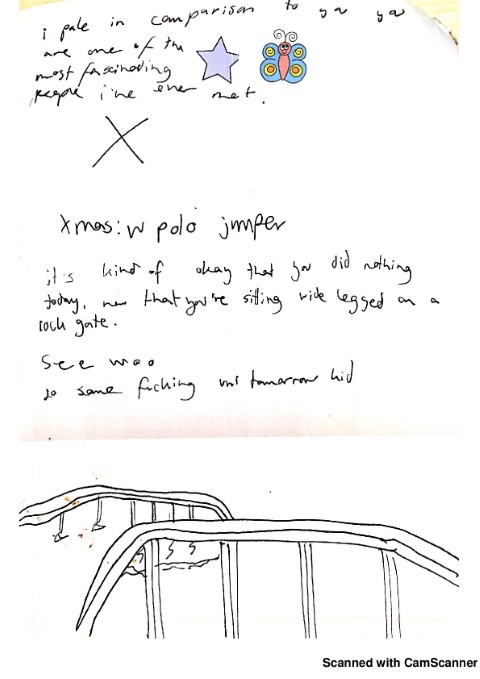 i pale in comparison to ya ya
are one of the
most fascinating
people i've ever met.
X
Xmas: w polo jmper
it's kind of okay that you did nothing
today, now that you're sitting wide legged on a
rock gate.
See
do some fucking tomorrow kid
Scanned with CamScanner